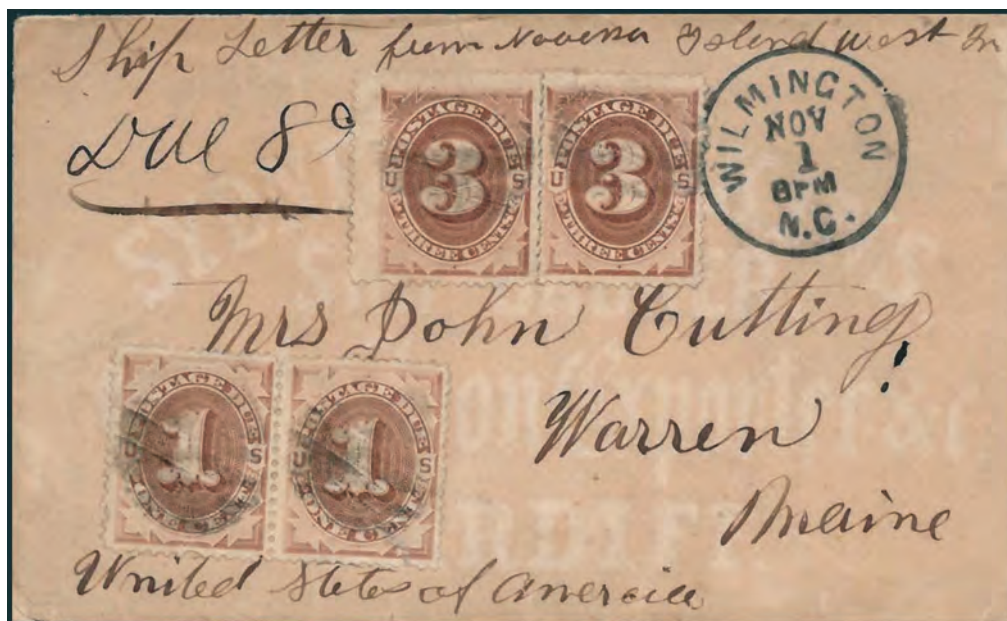 Ship Letter from Navassa Island West In
Due 8c
POSTAGE DUE
U 3 S
THREE CENTS
POSTAGE DUE
U 3 S
THREE CENTS
WILMINGTON
NOV
1
8PM
N.C.
Mrs John Cutting
Warren
Maine
POSTAGE DUE
U 1 S
ONE CENT
POSTAGE DUE
U 1 S
ONE CENT
United States of America